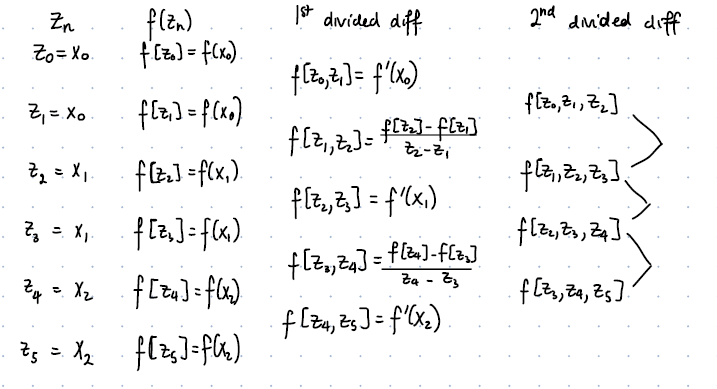 zₙ f(zₙ) 1st divided diff 2nd divided diff
z₀ = x₀ f[z₀] = f(x₀)
f[z₀,z₁] = f'(x₀)
z₁ = x₀ f[z₁] = f(x₀) f[z₀,z₁,z₂]
f[z₁,z₂] = f[z₂]-f[z₁] / z₂-z₁
z₂ = x₁ f[z₂] = f(x₁) f[z₁,z₂,z₃]
f[z₂,z₃] = f'(x₁)
z₃ = x₁ f[z₃] = f(x₁) f[z₂,z₃,z₄]
f[z₃,z₄] = f[z₄]-f[z₃] / z₄-z₃
z₄ = x₂ f[z₄] = f(x₂) f[z₃,z₄,z₅]
f[z₄,z₅] = f'(x₂)
z₅ = x₂ f[z₅] = f(x₂)